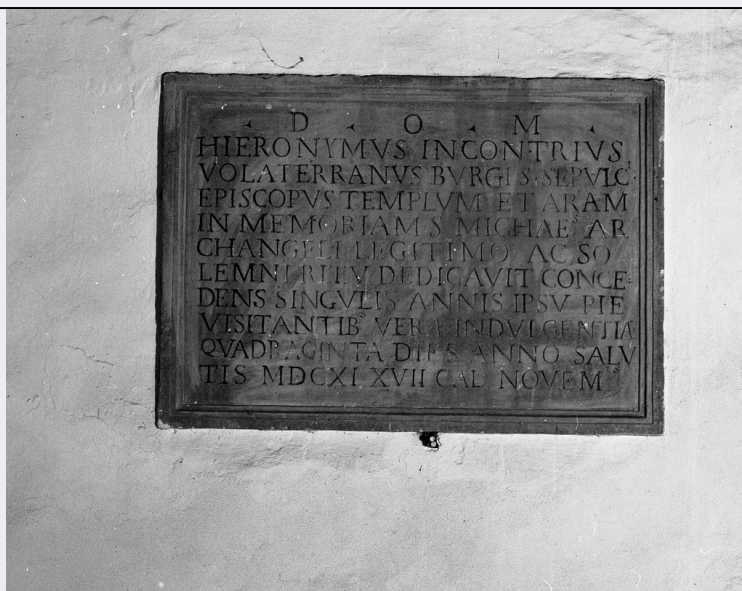 D O M
HIERONYMVS INCONTRIVS
VOLATERRANVS BVRGI S. SEPVLC.
EPISCOPVS TEMPLVM ET ARAM
IN MEMORIAM S MICHAEˢ AR
CHANGELI LEGITIMO AC SO
LEMNI RITV DEDICAVIT CONCE
DENS SINGVLIS ANNIS IPSV PIE
VISITANTIBˢ VERA INDVLGENTIA
QVADRAGINTA DIES ANNO SALV
TIS MDCXI XVII CAL NOVEMˢ